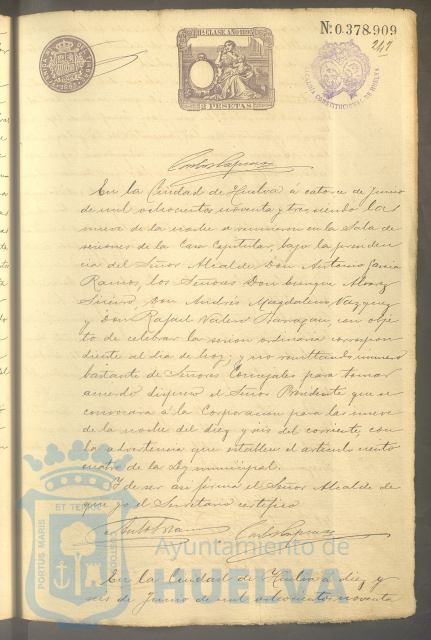 Nº 0.378.909
247
11ª CLASE AÑO 1893
2 PESETAS
ALCALDIA CONSTITUCIONAL DE HUELVA
En la Ciudad de Huelva á catorce de Junio
de mil ochocientos noventa y tres, siendo las
nueve de la noche se reunieron en la Sala de
sesiones de la Casa Capitular, bajo la presiden
cia del Señor Alcalde Don Antonio Garcia
Ramos, los Señores Don Enrique Alvarez
Don Andrés Magdalena Vazquez
y Don Rafael Valero Barragan, con obje
to de celebrar la sesion ordinaria correspon
diente al dia de hoy; y no resultando número
bastante de Señores Concejales para tomar
acuerdo dispuso el Señor Presidente que se
convocara á la Corporacion para las nueve
de la noche del diez y seis del corriente, con
la advertencia que establece el articulo ciento
cuatro de la Ley municipal.
Y de ser asi firma el Señor Alcalde de
que yo el Secretario certifico
En la Ciudad de Huelva á diez y
seis de Junio de mil ochocientos noventa
PORTUS MARIS
ET TERRAE
Ayuntamiento de
HUELVA